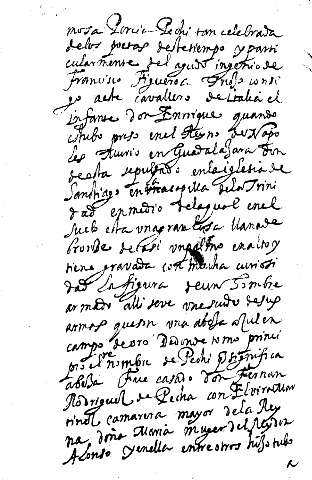 mosa Porcia Pechi tan celebrada
de los poetas deste tiempo y parti
cularmente del agudo ingenio de
Francisco Figueroa Trajo consi
go a este cavallero de italia el
infante don Enrrique quando
estubo preso en el Reyno de Napo
les Murio en Guadalajara don
de esta sepultado en la iglesia de
Santiago en la capilla de la Trini
dad en medio de la qual en el
suelo esta una gran losa llana de
bronce de casi un palmo en alto y
tiene gravada con mucha curiosi
dad la figura de un hombre
armado alli se ve un escudo de sus
armas que son una abeja açul en
campo de oro De donde tomo princi
pio el nombre de Pechi q significa
abeja Fue casado don Fernan
Rodriguez de Pecha con Elvira Mar
tinez camarera mayor de la Rey
na doña Maria muger del Rey don
Alonso y en ella entre otros hijos tubo
a